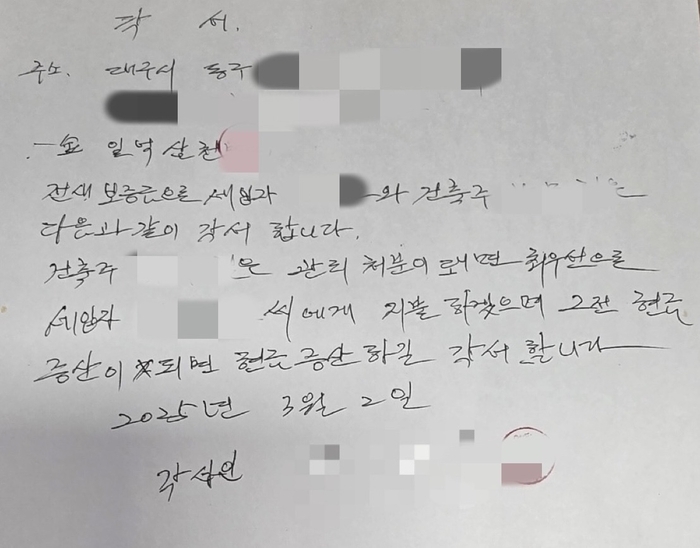 각 서.
주소. 대구시 동구
一金 일억 삼천
전세 보증금으로 세입자 와 건축주 은
다음과 같이 각서 합니다.
건축주 은 관리 처분이 되면 최우선으로
세입자 씨에게 지불 하겠으며 그전 현금
증산이 되면 현금 증산 하길 각서 합니다
2025년 3월 2일
각서인